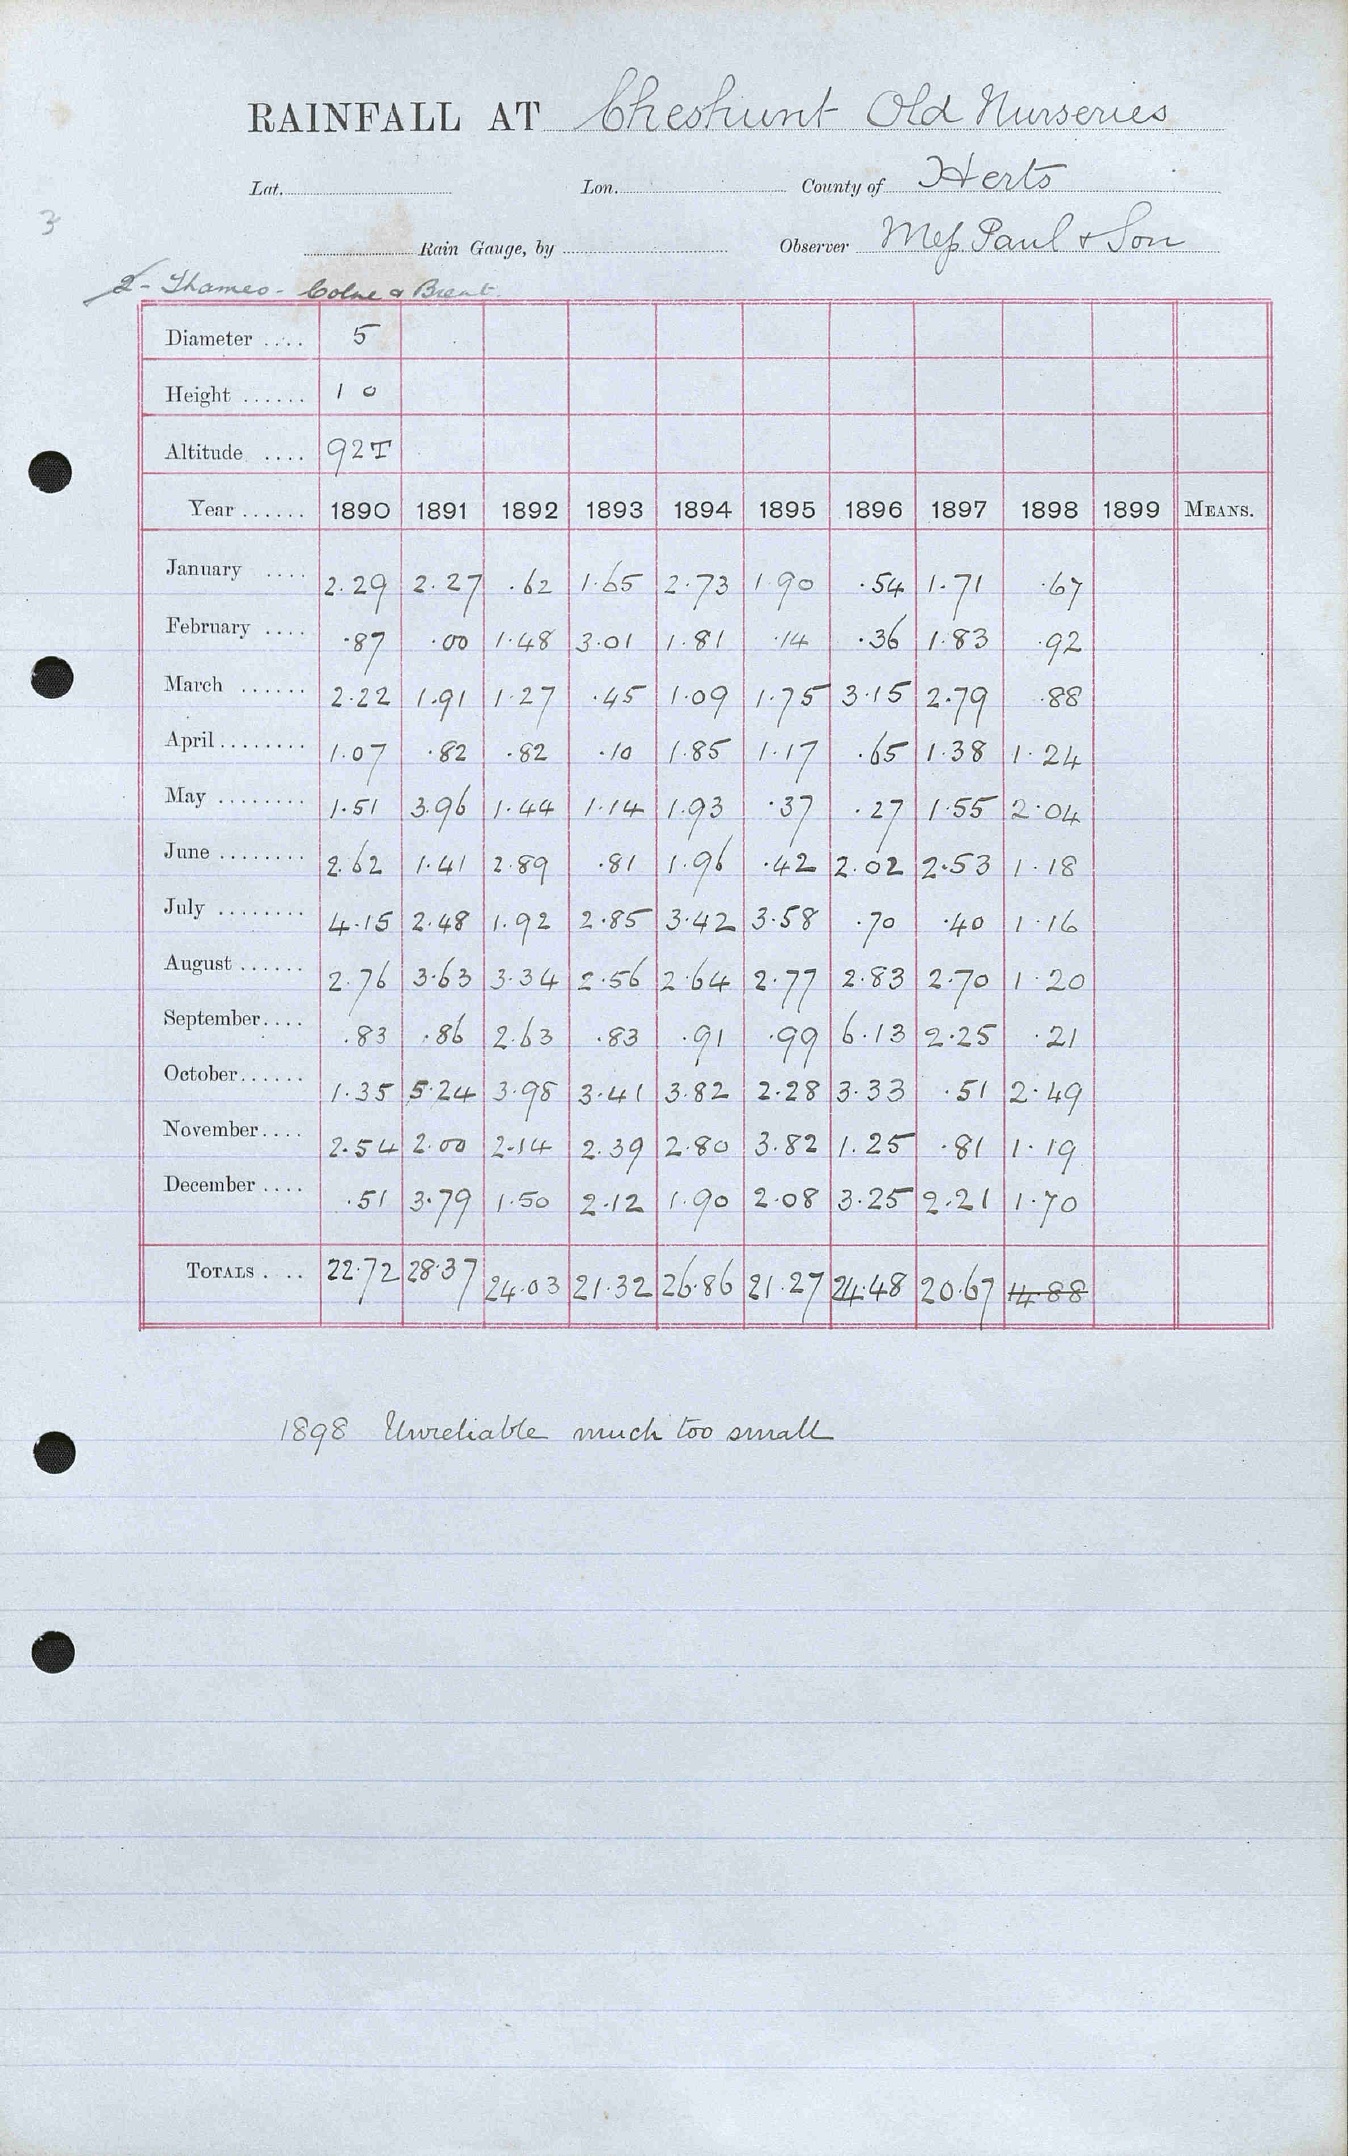 RAINFALL AT Cheshunt Old Nurseries
Lat. Lon. County of Herts
3
Rain Gauge, by Observer Mess Paul & Son
2 - Thames - Colne & Brent.
Diameter .... 5
Height ...... 1 0
Altitude .... 92T
Year ...... 1890 1891 1892 1893 1894 1895 1896 1897 1898 1899 MEANS.
January .... 2.29 2.27 .62 1.65 2.73 1.90 .54 1.71 .67
February .... .87 .00 1.48 3.01 1.81 .14 .36 1.83 .92
March ...... 2.22 1.91 1.27 .45 1.09 1.75 3.15 2.79 .88
April ........ 1.07 .82 .82 .10 1.85 1.17 .65 1.38 1.24
May ........ 1.51 3.96 1.44 1.14 1.93 .37 .27 1.55 2.04
June ........ 2.62 1.41 2.89 .81 1.96 .42 2.02 2.53 1.18
July ........ 4.15 2.48 1.92 2.85 3.42 3.58 .70 .40 1.16
August ...... 2.76 3.63 3.34 2.56 2.64 2.77 2.83 2.70 1.20
September .... .83 .86 2.63 .83 .91 .99 6.13 2.25 .21
October ...... 1.35 5.24 3.98 3.41 3.82 2.28 3.33 .51 2.49
November .... 2.54 2.00 2.14 2.39 2.80 3.82 1.25 .81 1.19
December .... .51 3.79 1.50 2.12 1.90 2.08 3.25 2.21 1.70
TOTALS .... 22.72 28.37 24.03 21.32 26.86 21.27 24.48 20.67 14.88
1898 Unreliable much too small